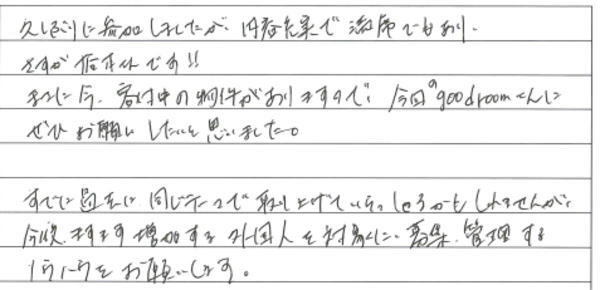 久しぶりに参加しましたが、内容充実で満席でもあり、
さすが 佐藤さんです!!
まさに今、客付中の物件がありますので、今回のgoodroomさんに
ぜひお願いしたいと思いました。
すでに過去に同じテーマで取り上げていらっしゃるかもしれませんが、
今後、ますます増加する外国人を対象に、募集、管理する
ノウハウをお願いします。